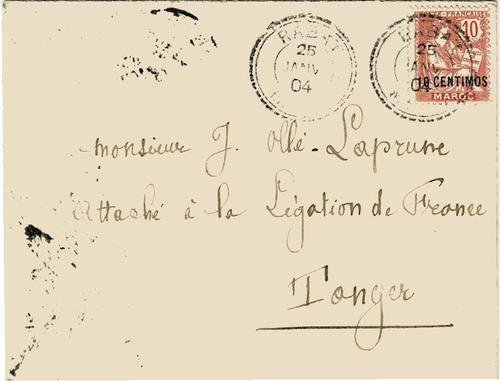 RABAT
25
JANV
04
RABAT
25
JANV
04
10
10 CENTIMOS
MAROC
Monsieur J. Ollé-Laprune
Attaché à la Légation de France
Tanger